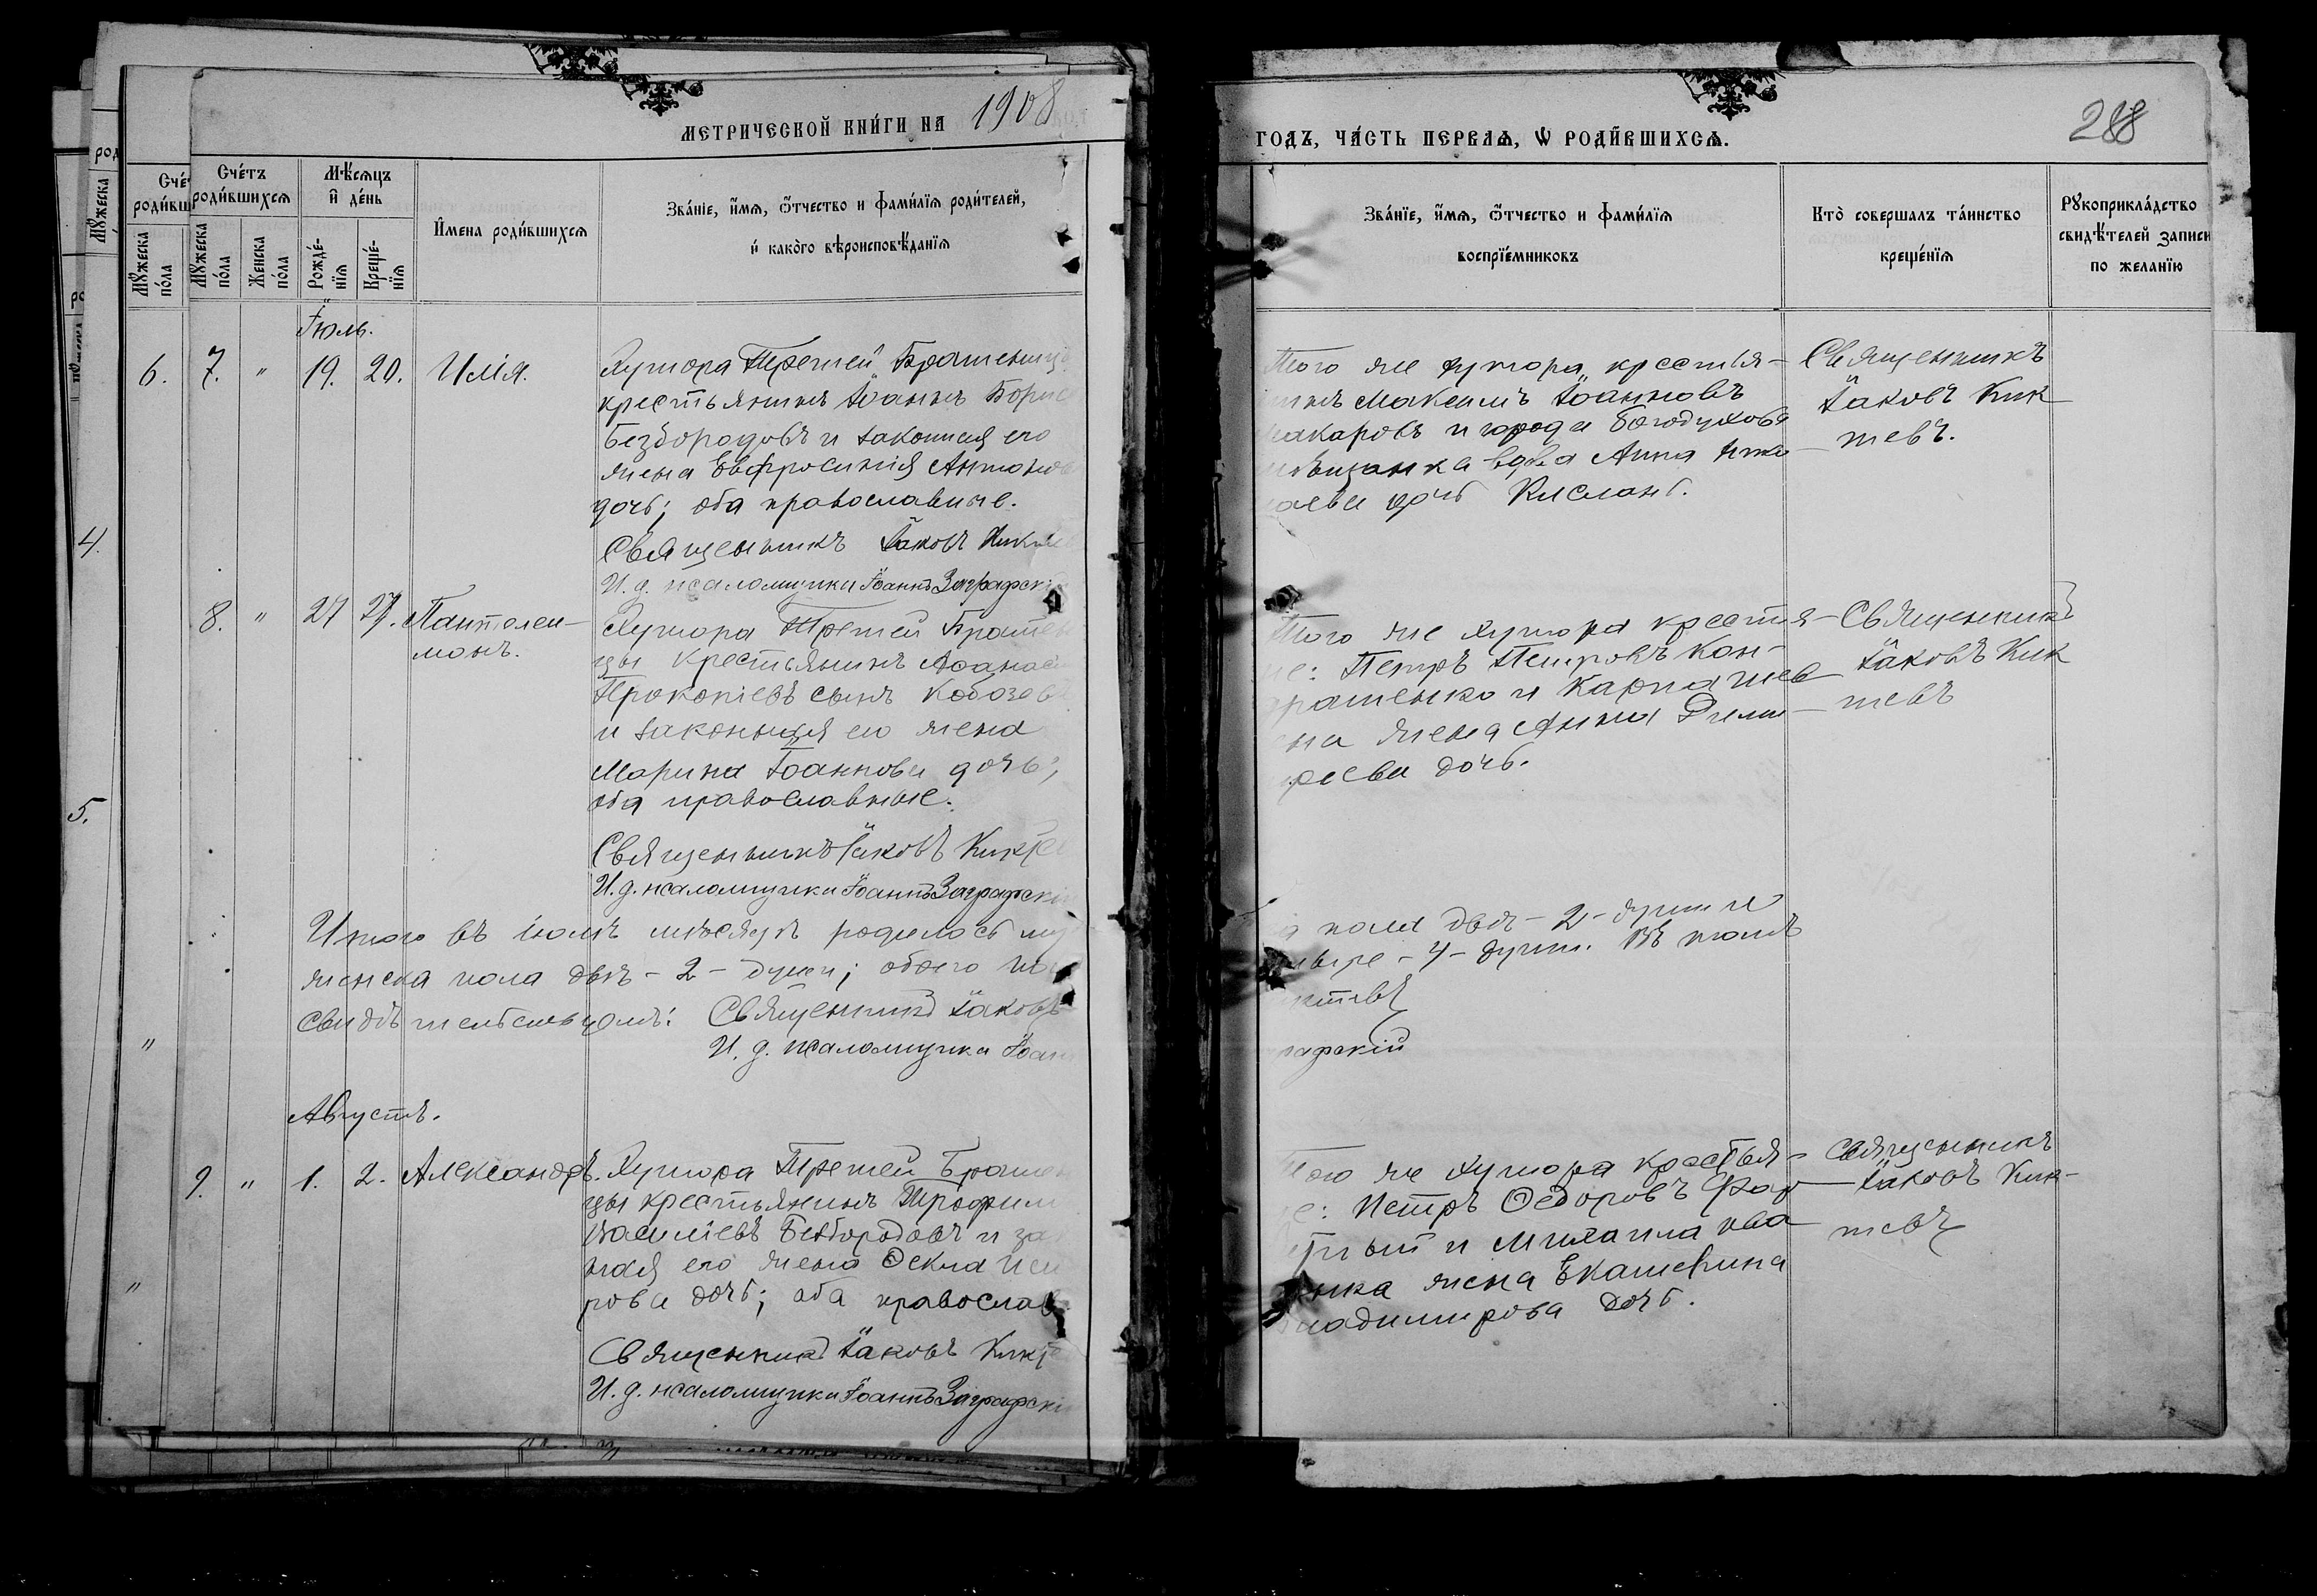 МЕТРИЧЕСКОЙ КНИ́ГИ НА 1908
ГОДЪ, ЧА́СТЬ ПЕРВАѦ, Ѡ РОДИ́ВШИХСѦ.
288
Сче́тъ роди́вшихсѧ
Мꙋжеска по́ла
Женска по́ла
Мѣ́сѧцъ и҆ де́нь
Рожде́-нїѧ
Креще́-нїѧ
И҆мена роди́вшихсѧ
Зва́нїе, и҆́мѧ, ѻ҆́тчество и фами́лїѧ роди́телей,
и҆ како́гѡ вѣроисповѣ́данїѧ
Зва́нїе, и҆́мѧ, ѻ҆́тчество и фами́лїѧ
воспрїе́мниковъ
Кто̀ соверша́лъ та́инство
креще́нїѧ
Рꙋкоприкла́дство
свидѣ́телей записи
по желанїю
Іюль.
6. 7. " 19. 20. Илія.
Хутора Третей Братениц
крестьянинъ Іоаннъ Борис
Безбородовъ и законная его
жена Евфросинія Антонов
дочь; оба православные.
Священникъ Іаковъ Кикт
И. д. псаломщика Іоаннъ Заграфскі
Того же хутора крестья-
нинъ Максимъ Іоанновъ
Макаровъ и города Богодухова
мѣщанка вдова Анна
дочь
Священникъ
Іаковъ Кик
тевъ.
4.
8. " 27 27. Пантелеи-
монъ.
Хутора Третей Братен
цы крестьянинъ Аѳанас
Прокопіевъ сынъ Кобозев
и законная его жена
Марина Іоаннова дочь;
оба православные.
Священникъ Іаковъ Кикте
И. д. псаломщика Іоаннъ Заграфскі
Того же хутора крестья-
не: Петръ Петровъ Кон-
дратенко и
жена Анна Дими-
тріева дочь.
Священникъ
Іаковъ Кик
тевъ
5.
Итого въ іюлѣ мѣсяцѣ родилось му
женска пола двѣ - 2 - души; обоего по
свидѣтельствуемъ: Священникъ Іаковъ
И. д. псаломщика Іоан
пола двѣ - 2 - души и
четыре - 4 - души. Въ чемъ
ктевъ
рафскій
Августъ.
9. " 1. 2. Александръ.
Хутора Третей Братен
цы крестьянинъ Трофим
Василіевъ Безбородовъ и за
ная его жена Ѳекла Иси
рова дочь; оба православ
Священникъ Іаковъ Кикт
И. д. псаломщика Іоаннъ Заграфскі
Того же хутора крестья-
не: Петръ Ѳедоровъ
и Михаила Ива
жена Екатерина
Владимирова дочь.
Священникъ
Іаковъ Кик-
тевъ